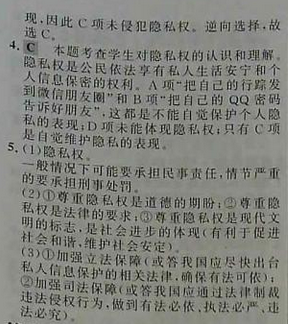 现,因此C项未侵犯隐私权。逆向选择,故
选C。
4. C 本题考查学生对隐私权的认识和理解。
隐私权是公民依法享有私人生活安宁和个
人信息保密的权利。A项“把自己的行踪发
到微信朋友圈”和B项“把自己的QQ密码
告诉好朋友”,这都是不能自觉保护个人隐
私的表现;D项未能体现隐私权;只有C项
是自觉维护隐私的表现。
5. (1)隐私权。
一般情况下可能要承担民事责任,情节严重
的要承担刑事处罚。
(2)①尊重隐私权是道德的期盼;②尊重隐
私权是法律的要求;③尊重隐私权是现代文
明的标志,是社会进步的体现(有利于促进
社会和谐,维护社会安定)。
(3)①加强立法保障(或答我国应尽快出台
私人信息保护的相关法律,确保有法可依);
②加强司法保障(或答我国应通过法律制裁
违法侵权行为,做到有法必依、执法必严、违
法必究)。